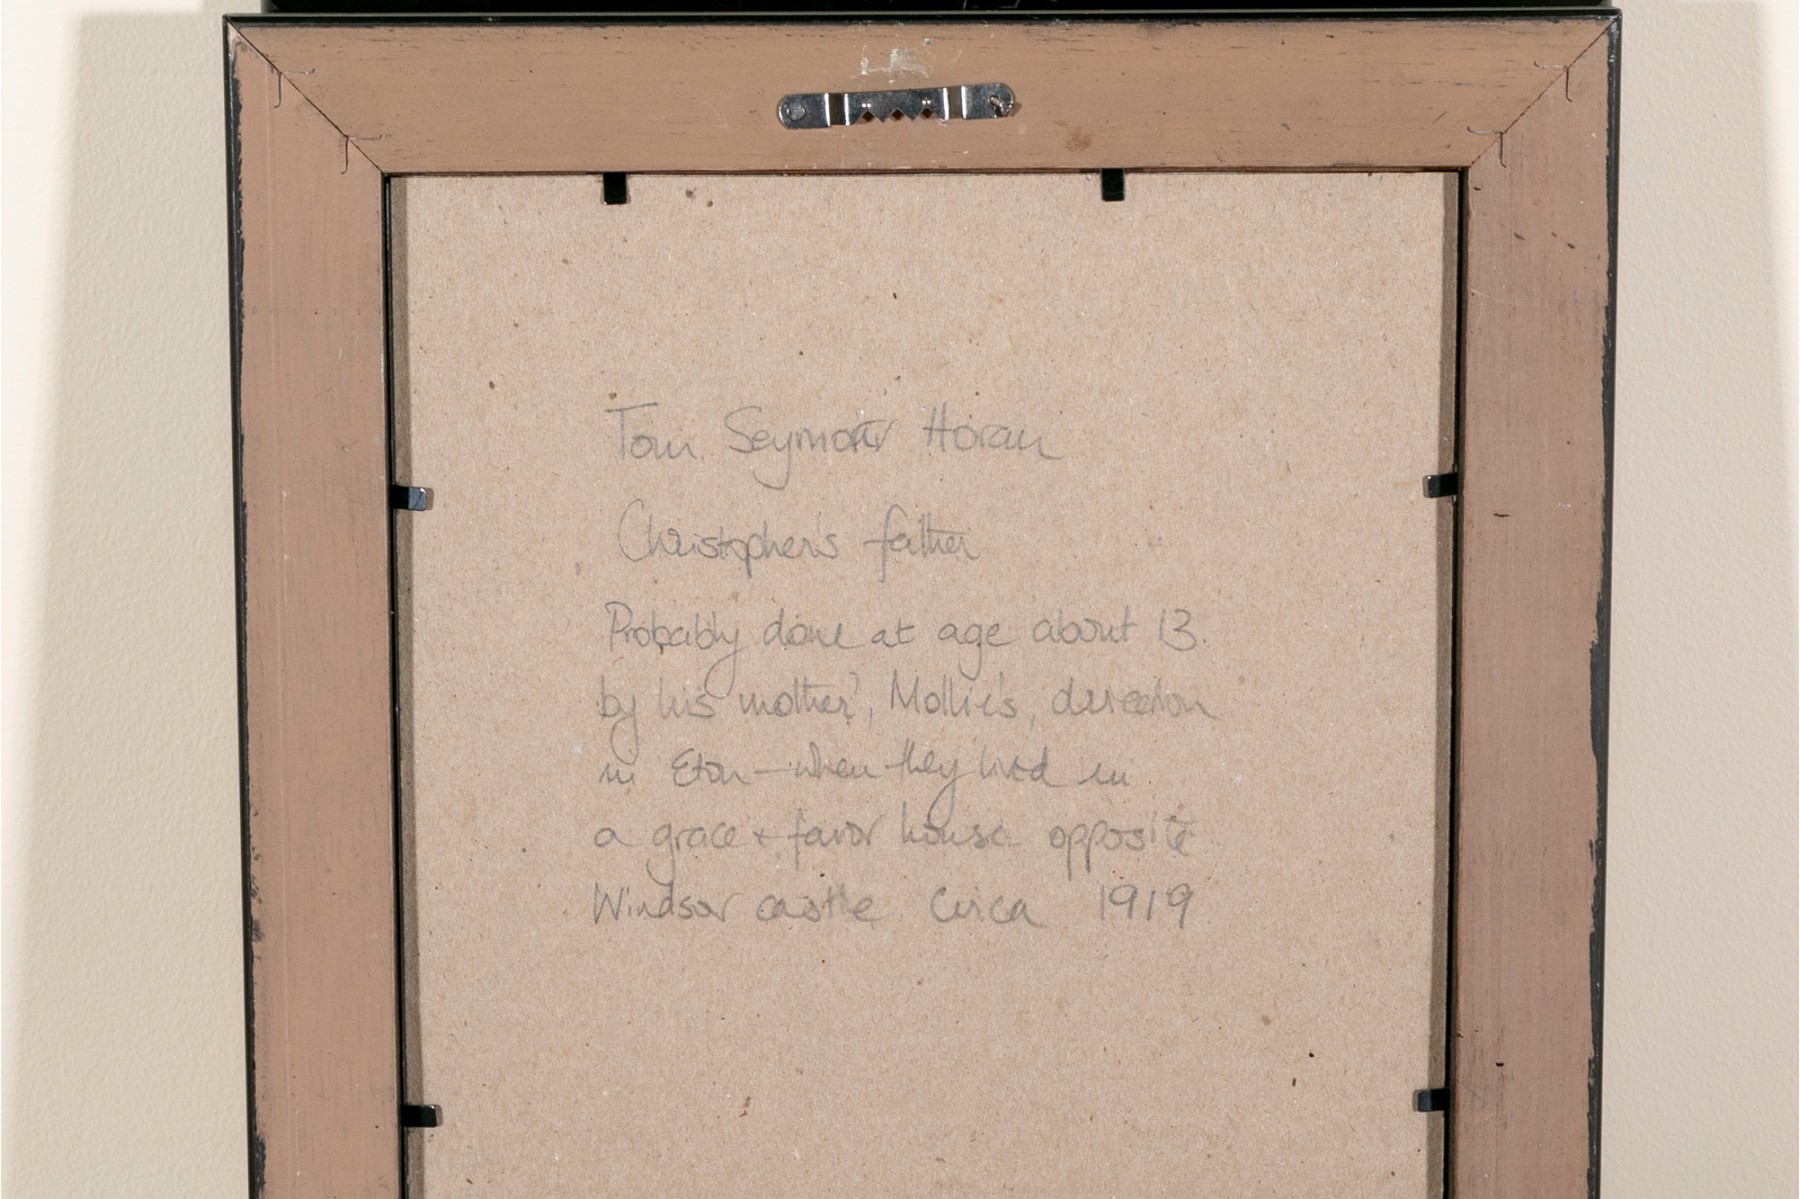 Tom Seymour Horan
Christopher's father
Probably done at age about 13
by his mother', Mollie's, direction
in Eton - when they lived in
a grace + favor house opposite
Windsor castle Circa 1919